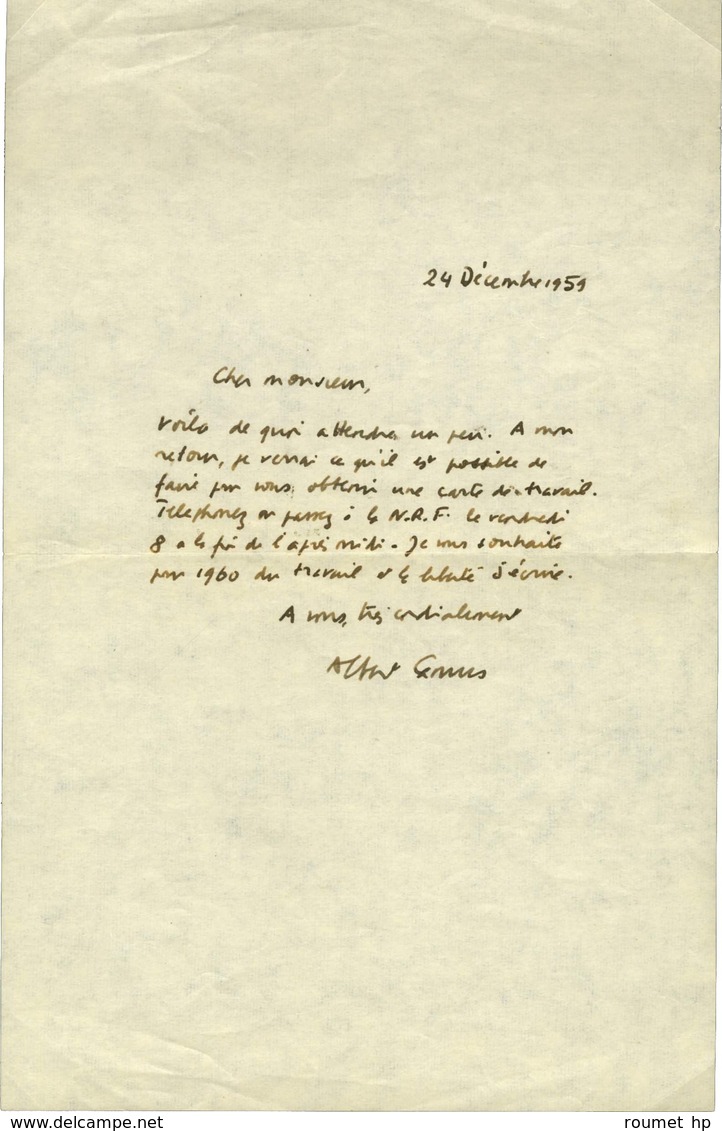 24 Décembre 1959
Cher monsieur,
Voilà de quoi attendre un peu. A mon
retour, je verrai ce qu'il est possible de
faire pour vous obtenir une carte de travail.
Téléphonez ou passez à la N.R.F. le vendredi
8 à la fin de l'après midi. Je vous souhaite
pour 1960 du travail et la liberté d'écrire.
A vous, très cordialement
Albert Camus
www.delcampe.net
roumet hp